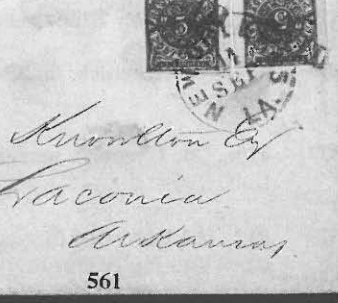 5 5
SEP
NEW LA.
Knowlton Esq
Laconia
Arkansas
561